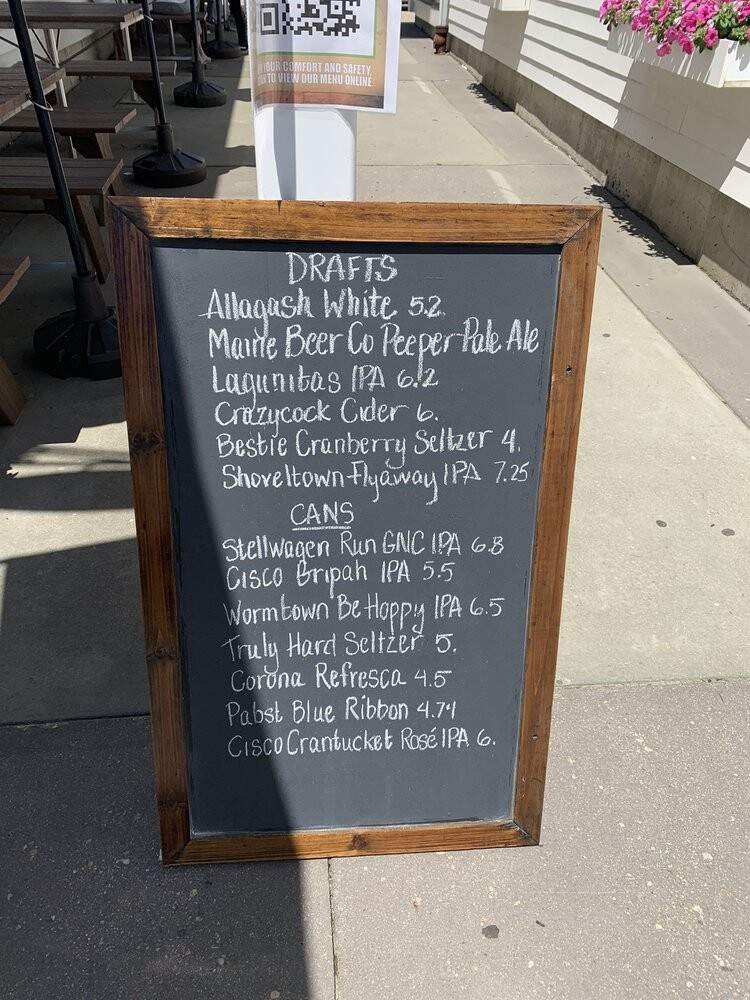 YOUR COMFORT AND SAFETY,
TO VIEW OUR MENU ONLINE
DRAFTS
Allagash White 5.2
Maine Beer Co Peeper Pale Ale
Lagunitas IPA 6.2
Crazycock Cider 6.
Bestie Cranberry Seltzer 4.
Shoveltown-Flyaway IPA 7.25
CANS
Stellwagen Run GNC IPA 6.8
Cisco Gripah IPA 5.5
Wormtown Be Hoppy IPA 6.5
Truly Hard Seltzer 5.
Corona Refresca 4.5
Pabst Blue Ribbon 4.74
Cisco Crantucket Rosé IPA 6.